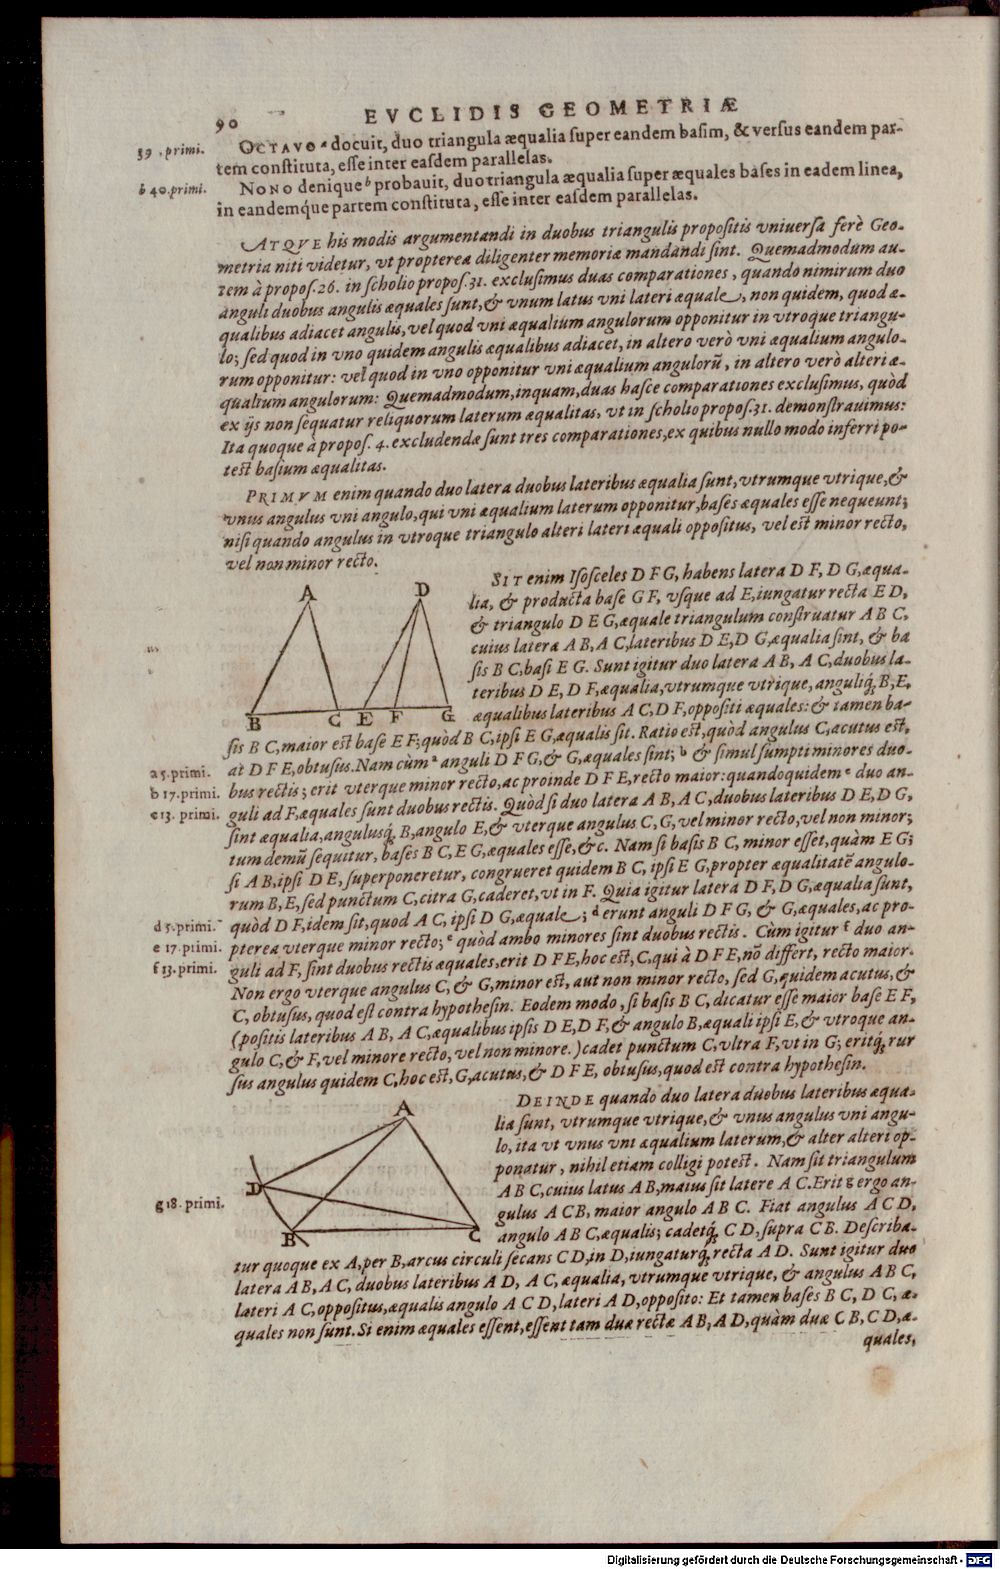 90
EVCLIDIS GEOMETRIÆ
39 .primi.
OCTAVO ª docuit, duo triangula æqualia ſuper eandem baſim, & verſus eandem par-
tem conſtituta, eſſe inter eaſdem parallelas.
b 40.primi.
NONO denique b probauit, duo triangula æqualia ſuper æquales baſes in eadem linea,
in eandemq́ue partem conſtituta, eſſe inter eaſdem parallelas.
ATQVE his modis argumentandi in duobus triangulis propoſitis vniuerſa ferè Geo-
metria niti videtur, vt propterea diligenter memoriæ mandandi ſint. Quemadmodum au-
tem à propoſ.26. in ſcholio propoſ.31. excluſimus duas comparationes, quando nimirum duo
anguli duobus angulis æquales ſunt, & vnum latus vni lateri æquale, non quidem, quod æ-
qualibus adiacet angulis, vel quod vni æqualium angulorum opponitur in vtroque triangu-
lo; ſed quod in vno quidem angulis æqualibus adiacet, in altero verò vni æqualium angulo-
rum opponitur: vel quod in vno opponitur vni æqualium angulorũ, in altero verò alteri æ-
qualium angulorum: Quemadmodum, inquam, duas haſce comparationes excluſimus, quòd
ex ijs non ſequatur reliquorum laterum æqualitas, vt in ſcholio propoſ.31. demonſtrauimus:
Ita quoque à propoſ. 4. excludendæ ſunt tres comparationes, ex quibus nullo modo inferri po-
teſt baſium æqualitas.
PRIMVM enim quando duo latera duobus lateribus æqualia ſunt, vtrumque vtrique, &
vnus angulus vni angulo, qui vni æqualium laterum opponitur, baſes æquales eſſe nequeunt;
niſi quando angulus in vtroque triangulo alteri lateri æquali oppoſitus, vel eſt minor recto,
vel non minor recto.
A D
B C E F G
SIT enim Iſoſceles D F G, habens latera D F, D G, æqua-
lia, & producta baſe G F, vſque ad E, iungatur recta E D,
& triangulo D E G, æquale triangulum conſtruatur A B C,
cuius latera A B, A C, lateribus D E, D G, æqualia ſint, & ba
ſis B C, baſi E G. Sunt igitur duo latera A B, A C, duobus la-
teribus D E, D F, æqualia, vtrumque vtrique, anguliq́; B, E,
æqualibus lateribus A C, D F, oppoſiti æquales: & tamen ba-
ſis B C, maior eſt baſe E F; quòd B C, ipſi E G, æqualis ſit. Ratio eſt, quòd angulus C, acutus eſt,
a 5.primi.
at D F E, obtuſus. Nam cùm a anguli D F G, & G, æquales ſint; b & ſimul ſumpti minores duo-
b 17.primi.
bus rectis; erit vterque minor recto, ac proinde D F E, recto maior: quandoquidem c duo an-
c 13. primi.
guli ad F, æquales ſunt duobus rectis. Quòd ſi duo latera A B, A C, duobus lateribus D E, D G,
ſint æqualia, angulusq́; B, angulo E, & vterque angulus C, G, vel minor recto, vel non minor;
tum demũ ſequitur, baſes B C, E G, æquales eſſe, &c. Nam ſi baſis B C, minor eſſet, quàm E G;
ſi A B, ipſi D E, ſuperponeretur, congrueret quidem B C, ipſi E G, propter æqualitatẽ angulo-
rum B, E, ſed punctum C, citra G, caderet, vt in F. Quia igitur latera D F, D G, æqualia ſunt,
d 5.primi.
quòd D F, idem ſit, quod A C, ipſi D G, æquale; d erunt anguli D F G, & G, æquales, ac pro-
e 17.primi.
pterea vterque minor recto; e quòd ambo minores ſint duobus rectis. Cùm igitur f duo an-
f 13. primi.
guli ad F, ſint duobus rectis æquales, erit D F E, hoc eſt, C, qui à D F E, nõ differt, recto maior.
Non ergo vterque angulus C, & G, minor eſt, aut non minor recto, ſed G, quidem acutus, &
C, obtuſus, quod eſt contra hypotheſin. Eodem modo, ſi baſis B C, dicatur eſſe maior baſe E F,
(poſitis lateribus A B, A C, æqualibus ipſis D E, D F, & angulo B, æquali ipſi E, & vtroque an-
gulo C, & F, vel minore recto, vel non minore.) cadet punctum C, vltra F, vt in G; eritq́; rur
ſus angulus quidem C, hoc eſt, G, acutus, & D F E, obtuſus, quod eſt contra hypotheſin.
A
D
B C
DEINDE quando duo latera duobus lateribus æqua-
lia ſunt, vtrumque vtrique, & vnus angulus vni angu-
lo, ita vt vnus vni æqualium laterum, & alter alteri op-
ponatur, nihil etiam colligi poteſt. Nam ſit triangulum
A B C, cuius latus A B, maius ſit latere A C. Erit g ergo an-
g 18. primi.
gulus A C B, maior angulo A B C. Fiat angulus A C D,
angulo A B C, æqualis; cadetq́; C D, ſupra C B. Deſcriba-
tur quoque ex A, per B, arcus circuli ſecans C D, in D, iungaturq́; recta A D. Sunt igitur duo
latera A B, A C, duobus lateribus A D, A C, æqualia, vtrumque vtrique, & angulus A B C,
lateri A C, oppoſitus, æqualis angulo A C D, lateri A D, oppoſito: Et tamen baſes B C, D C, æ-
quales non ſunt. Si enim æquales eſſent, eſſent tam duæ rectæ A B, A D, quàm duæ C B, C D, æ-
quales,
Digitalisierung gefördert durch die Deutsche Forschungsgemeinschaft - DFG